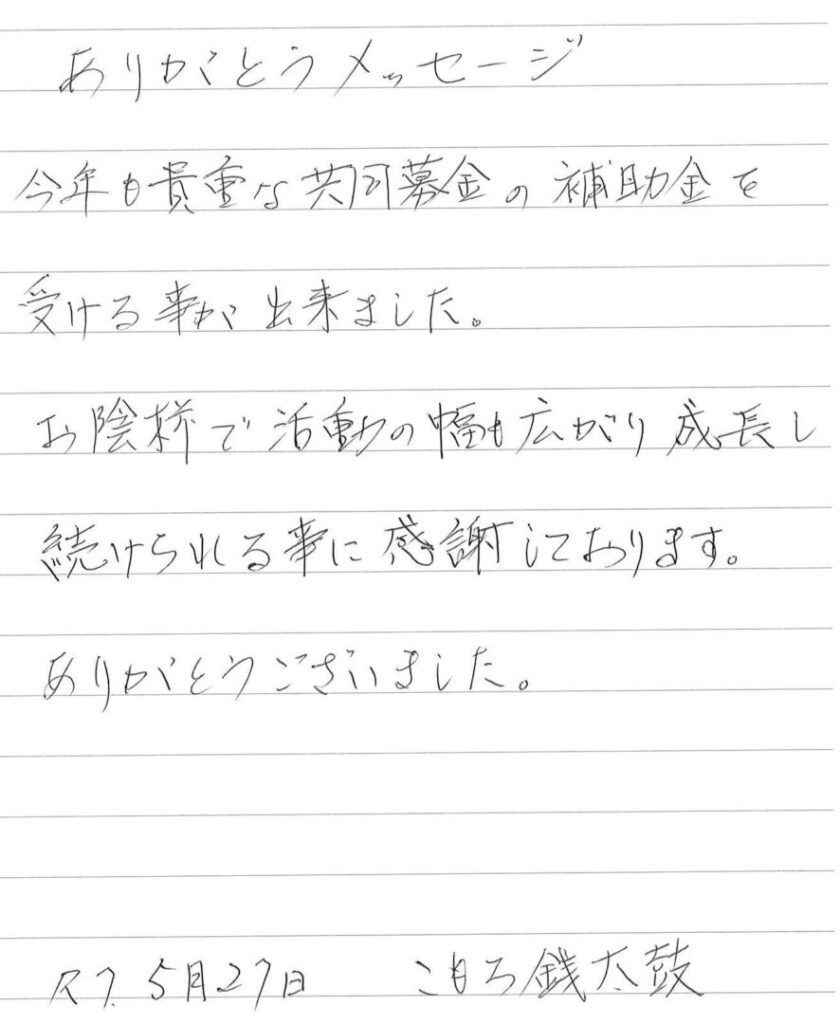 ありがとうメッセージ
今年も貴重な共同募金の補助金を
受ける事が出来ました。
お陰様で活動の幅も広がり成長し
続けられる事に感謝しております。
ありがとうございました。
R7.5月27日 こもろ銭太鼓